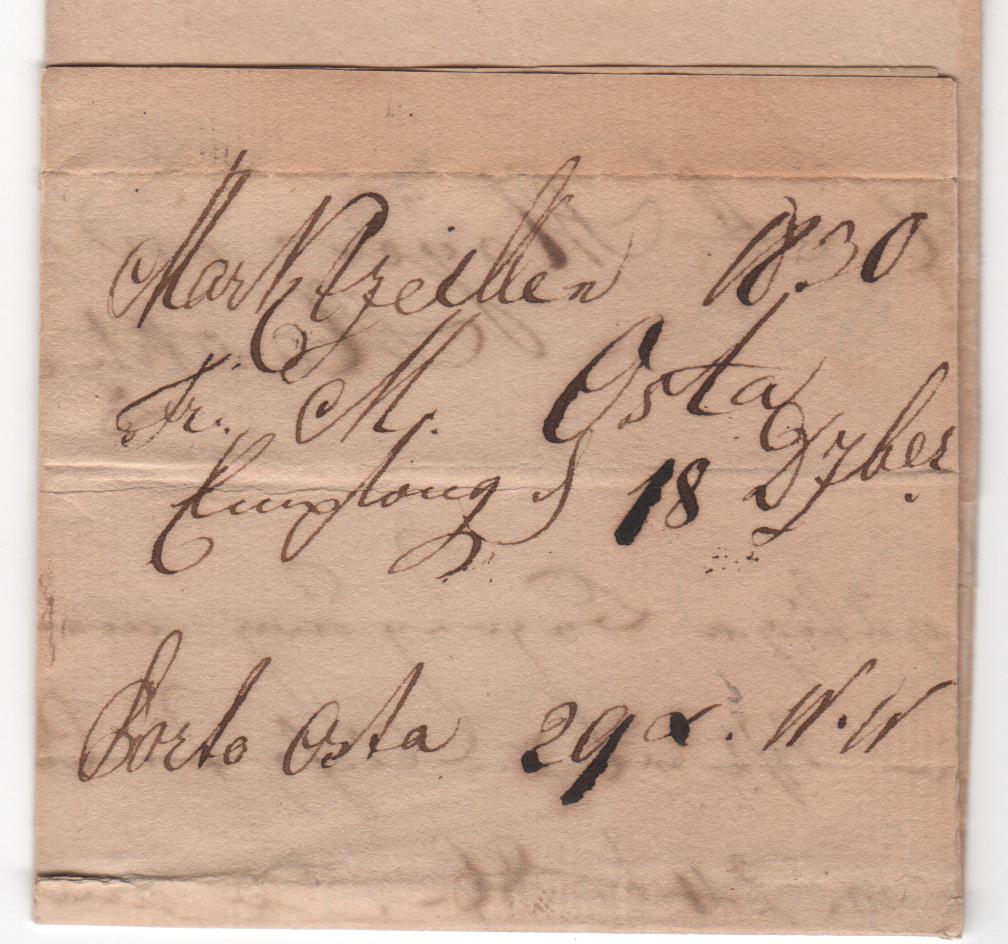 Markzeillen 1830
Fr. M. Osta
Empfang d 18 Dzber
Porto Osta 29 x. W.W